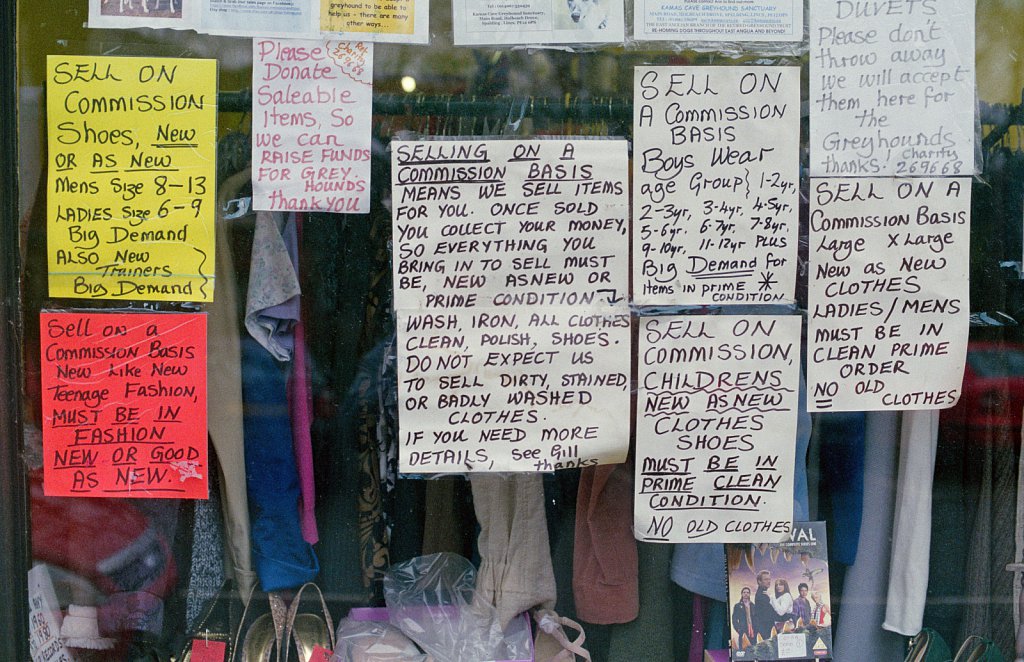 greyhound to be able to
help us - there are many
other ways...
Kamas Cave Greyhound Sanctuary,
KAMAS CAVE GREYHOUND SANCTUARY
RE-HOMING DOGS THROUGHOUT EAST ANGLIA AND BEYOND!
SELL ON
COMMISSION
Shoes, New
OR AS NEW
Mens Size 8-13
LADIES Size 6-9
Big DEMAND
ALSO New
Trainers
Big DEMAND
Sell on a
Commission Basis
New Like New
Teenage Fashion,
MUST BE IN
FASHION
NEW OR GOOD
AS NEW.
Please
Donate
Saleable
Items, So
we can
RAISE FUNDS
FOR GREY.
HOUNDS
thank you
SELLING ON A
COMMISSION BASIS
MEANS WE SELL ITEMS
FOR YOU. ONCE SOLD
YOU COLLECT YOUR MONEY,
SO EVERYTHING YOU
BRING IN TO SELL MUST
BE, NEW ASNEW OR
PRIME CONDITION
WASH, IRON, ALL CLOTHES
CLEAN, POLISH, SHOES.
DO NOT EXPECT US
TO SELL DIRTY, STAINED,
OR BADLY WASHED
CLOTHES.
IF YOU NEED MORE
DETAILS, See Gill
thanks
SELL ON
A COMMISSION
BASIS
Boys Wear
age Group} 1-2yr,
2-3yr, 3-4yr, 4-5yr,
5-6yr, 6-7yr, 7-8yr,
9-10yr, 11-12yr PLUS
Big Demand for
Items in PRIME *
CONDITION
SELL ON
COMMISSION,
CHILDRENS
NEW AS NEW
CLOTHES
SHOES
MUST BE IN
PRIME CLEAN
CONDITION.
NO OLD CLOTHES
DUVETS
Please don't
throw away
we will accept
them here for
the
Greyhounds
thanks. Charity
269668
SELL ON A
Commission Basis
Large X Large
New as New
CLOTHES
LADIES/MENS
MUST BE IN
CLEAN PRIME
ORDER
NO OLD
CLOTHES